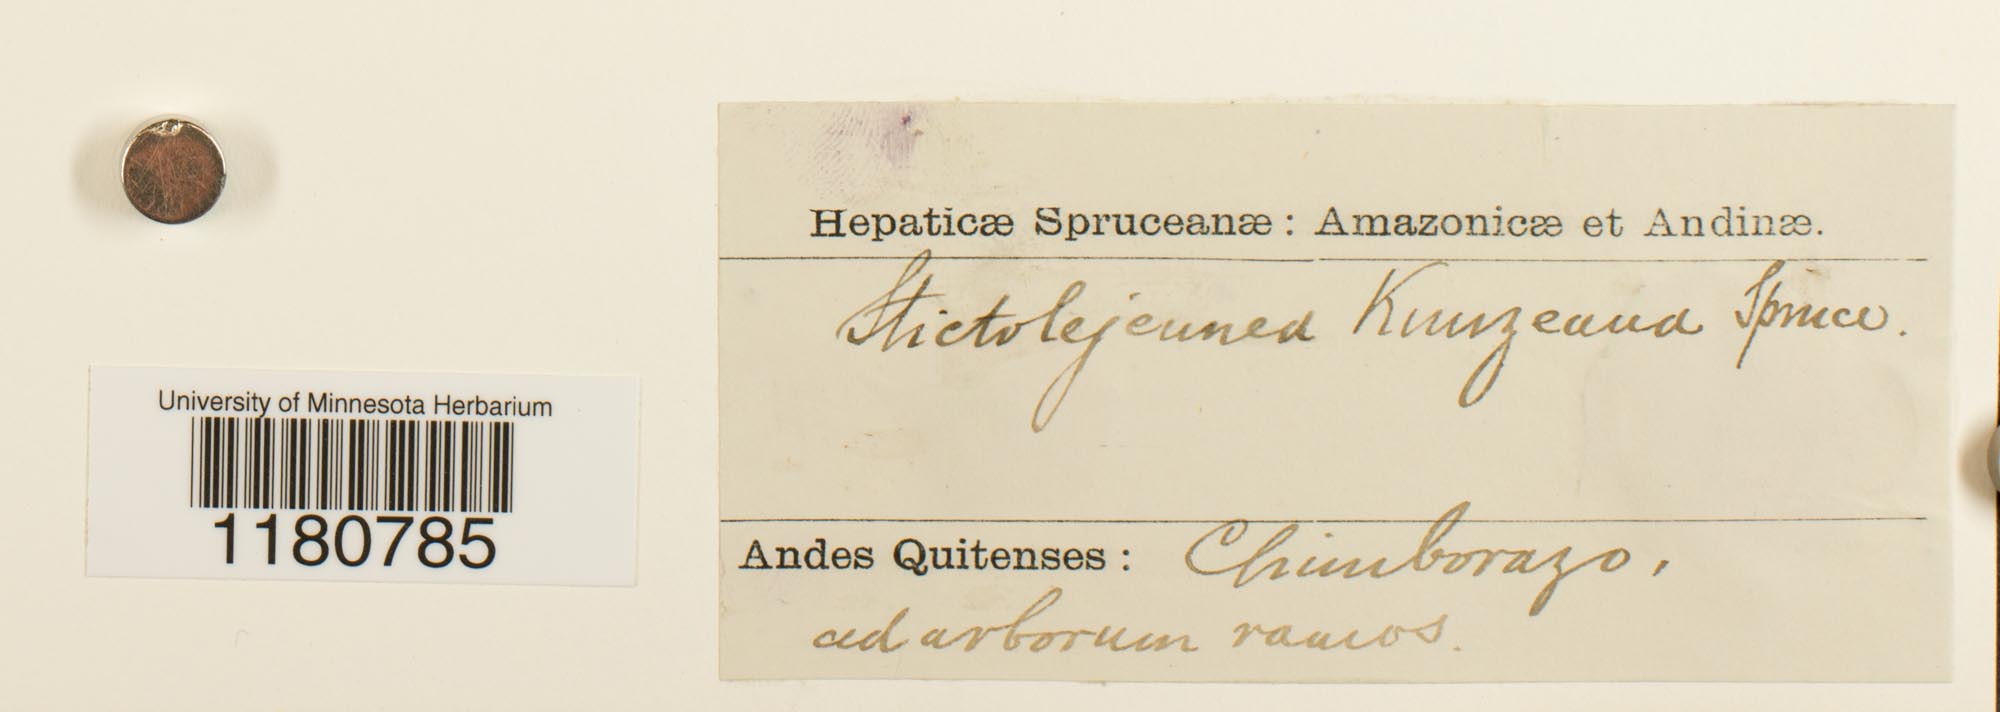 University of Minnesota Herbarium
1180785
Hepaticæ Spruceanæ: Amazonicæ et Andinæ.
Stictolejeunea Kunzeana Spruce.
Andes Quitenses: Chimborazo,
ad arborum ramos.